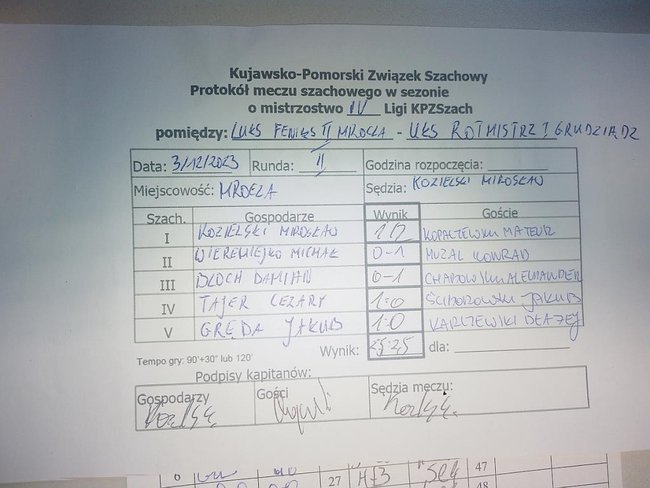 Kujawsko-Pomorski Związek Szachowy
Protokół meczu szachowego w sezonie
o mistrzostwo IV Ligi KPZSzach
pomiędzy: LUKS FENIKS II MROCZA - UKS ROTMISTRZ I GRUDZIĄDZ
Data: 3/12/2023 Runda: II Godzina rozpoczęcia:
Miejscowość: MROCZA Sędzia: KOZIELSKI MIROSŁAW
Szach. Gospodarze Wynik Goście
I KOZIELSKI MIROSŁAW 1/2 MATEUSZ
II WIEREMIEJKO MICHAŁ 0-1 MUZAL KONRAD
III BLOCH DAMIAN 0-1 ALEKSANDER
IV TAJER CEZARY 1-0 JAKUB
V GRĘDA JAKUB 1-0 BŁAŻEJ
Tempo gry: 90'+30" lub 120' Wynik: 2,5:2,5 dla:
Podpisy kapitanów:
Gospodarzy Gości Sędzia meczu:
27 47
48